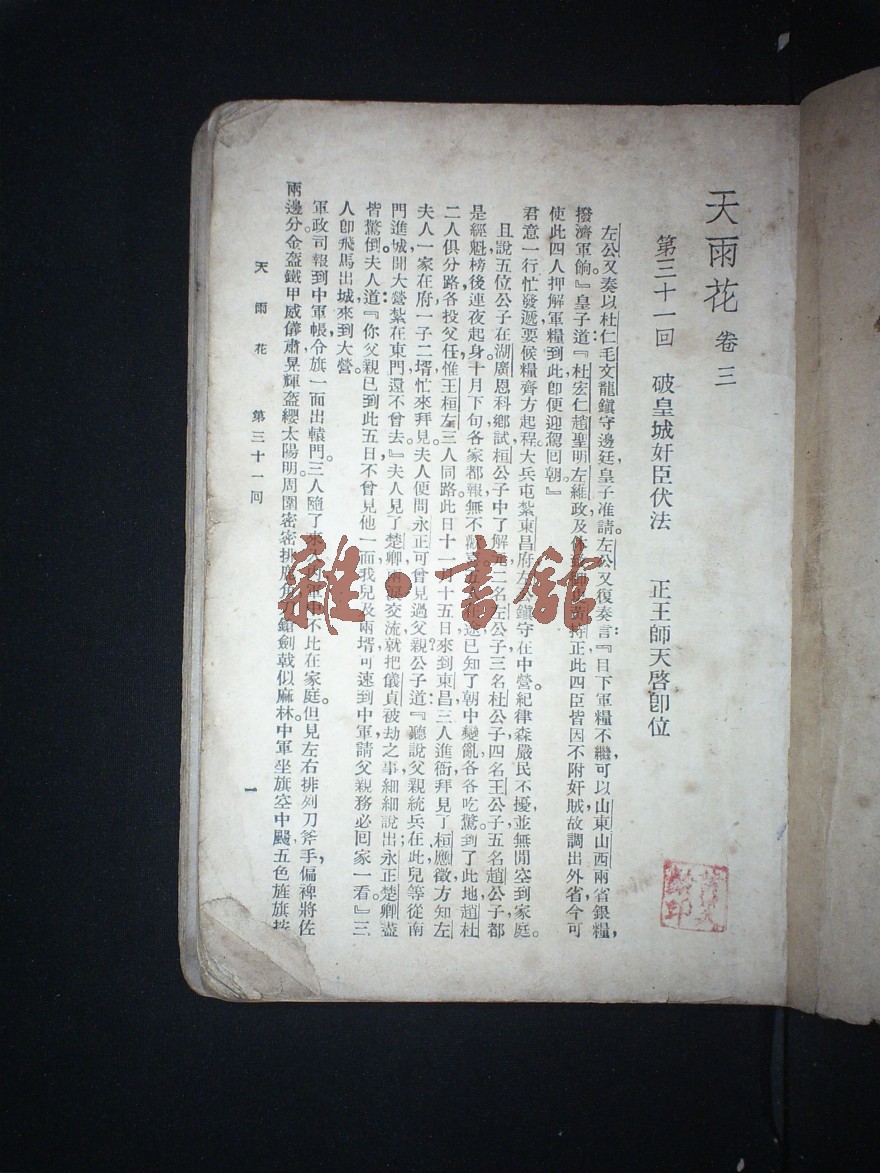 天雨花 卷三
第三十一回 破皇城奸臣伏法 正王師天啓卽位
左公又奏以杜仁毛文龍鎭守邊廷皇子准請左公又復奏言『目下軍糧不繼可以山東山西兩省銀糧,
撥濟軍餉。』皇子道『杜宏仁趙聖明左維政及正此四臣皆因不附奸賊故調出外省今可
使此四人押解軍糧到此卽便迎駕回朝。』
君意一行忙發遞要候糧齊方起程大兵屯紮東昌府左鎭守在中營紀律森嚴民不擾並無閒空到家庭。
且說五位公子在湖廣恩科鄉試桓公子中了解二名左公子三名杜公子四名王公子五名趙公子都
是經魁榜後連夜起身十月下旬各家都報無不已知了朝中變亂各各吃驚到了此地趙杜
二人俱分路各投父任惟王桓左三人同路此日十一十五日來到東昌三人進衙拜見了桓應徵方知左
夫人一家在府一子二壻忙來拜見夫人便問永正可曾見過父親公子道『聽說父親統兵在此兒等從南
門進城開大營紮在東門還不曾去。』夫人見了楚卿交流就把儀貞被劫之事細細說出永正楚卿盡
皆驚倒夫人道『你父親已到此五日不曾見他一面我兒及兩壻可速到中軍請父親務必回家一看。』三
人卽飛馬出城來到大營
軍政司報到中軍帳令旗一面出轅門三人隨了來中不比在家庭但見左右排列刀斧手,偏裨將佐
兩邊分金盔鐵甲威儀肅晃輝盔纓太陽明周圍密密排鎗劍戟似麻林中軍坐旗空中颺五色旌旗
天雨花 第三十一回
一
雜·書館